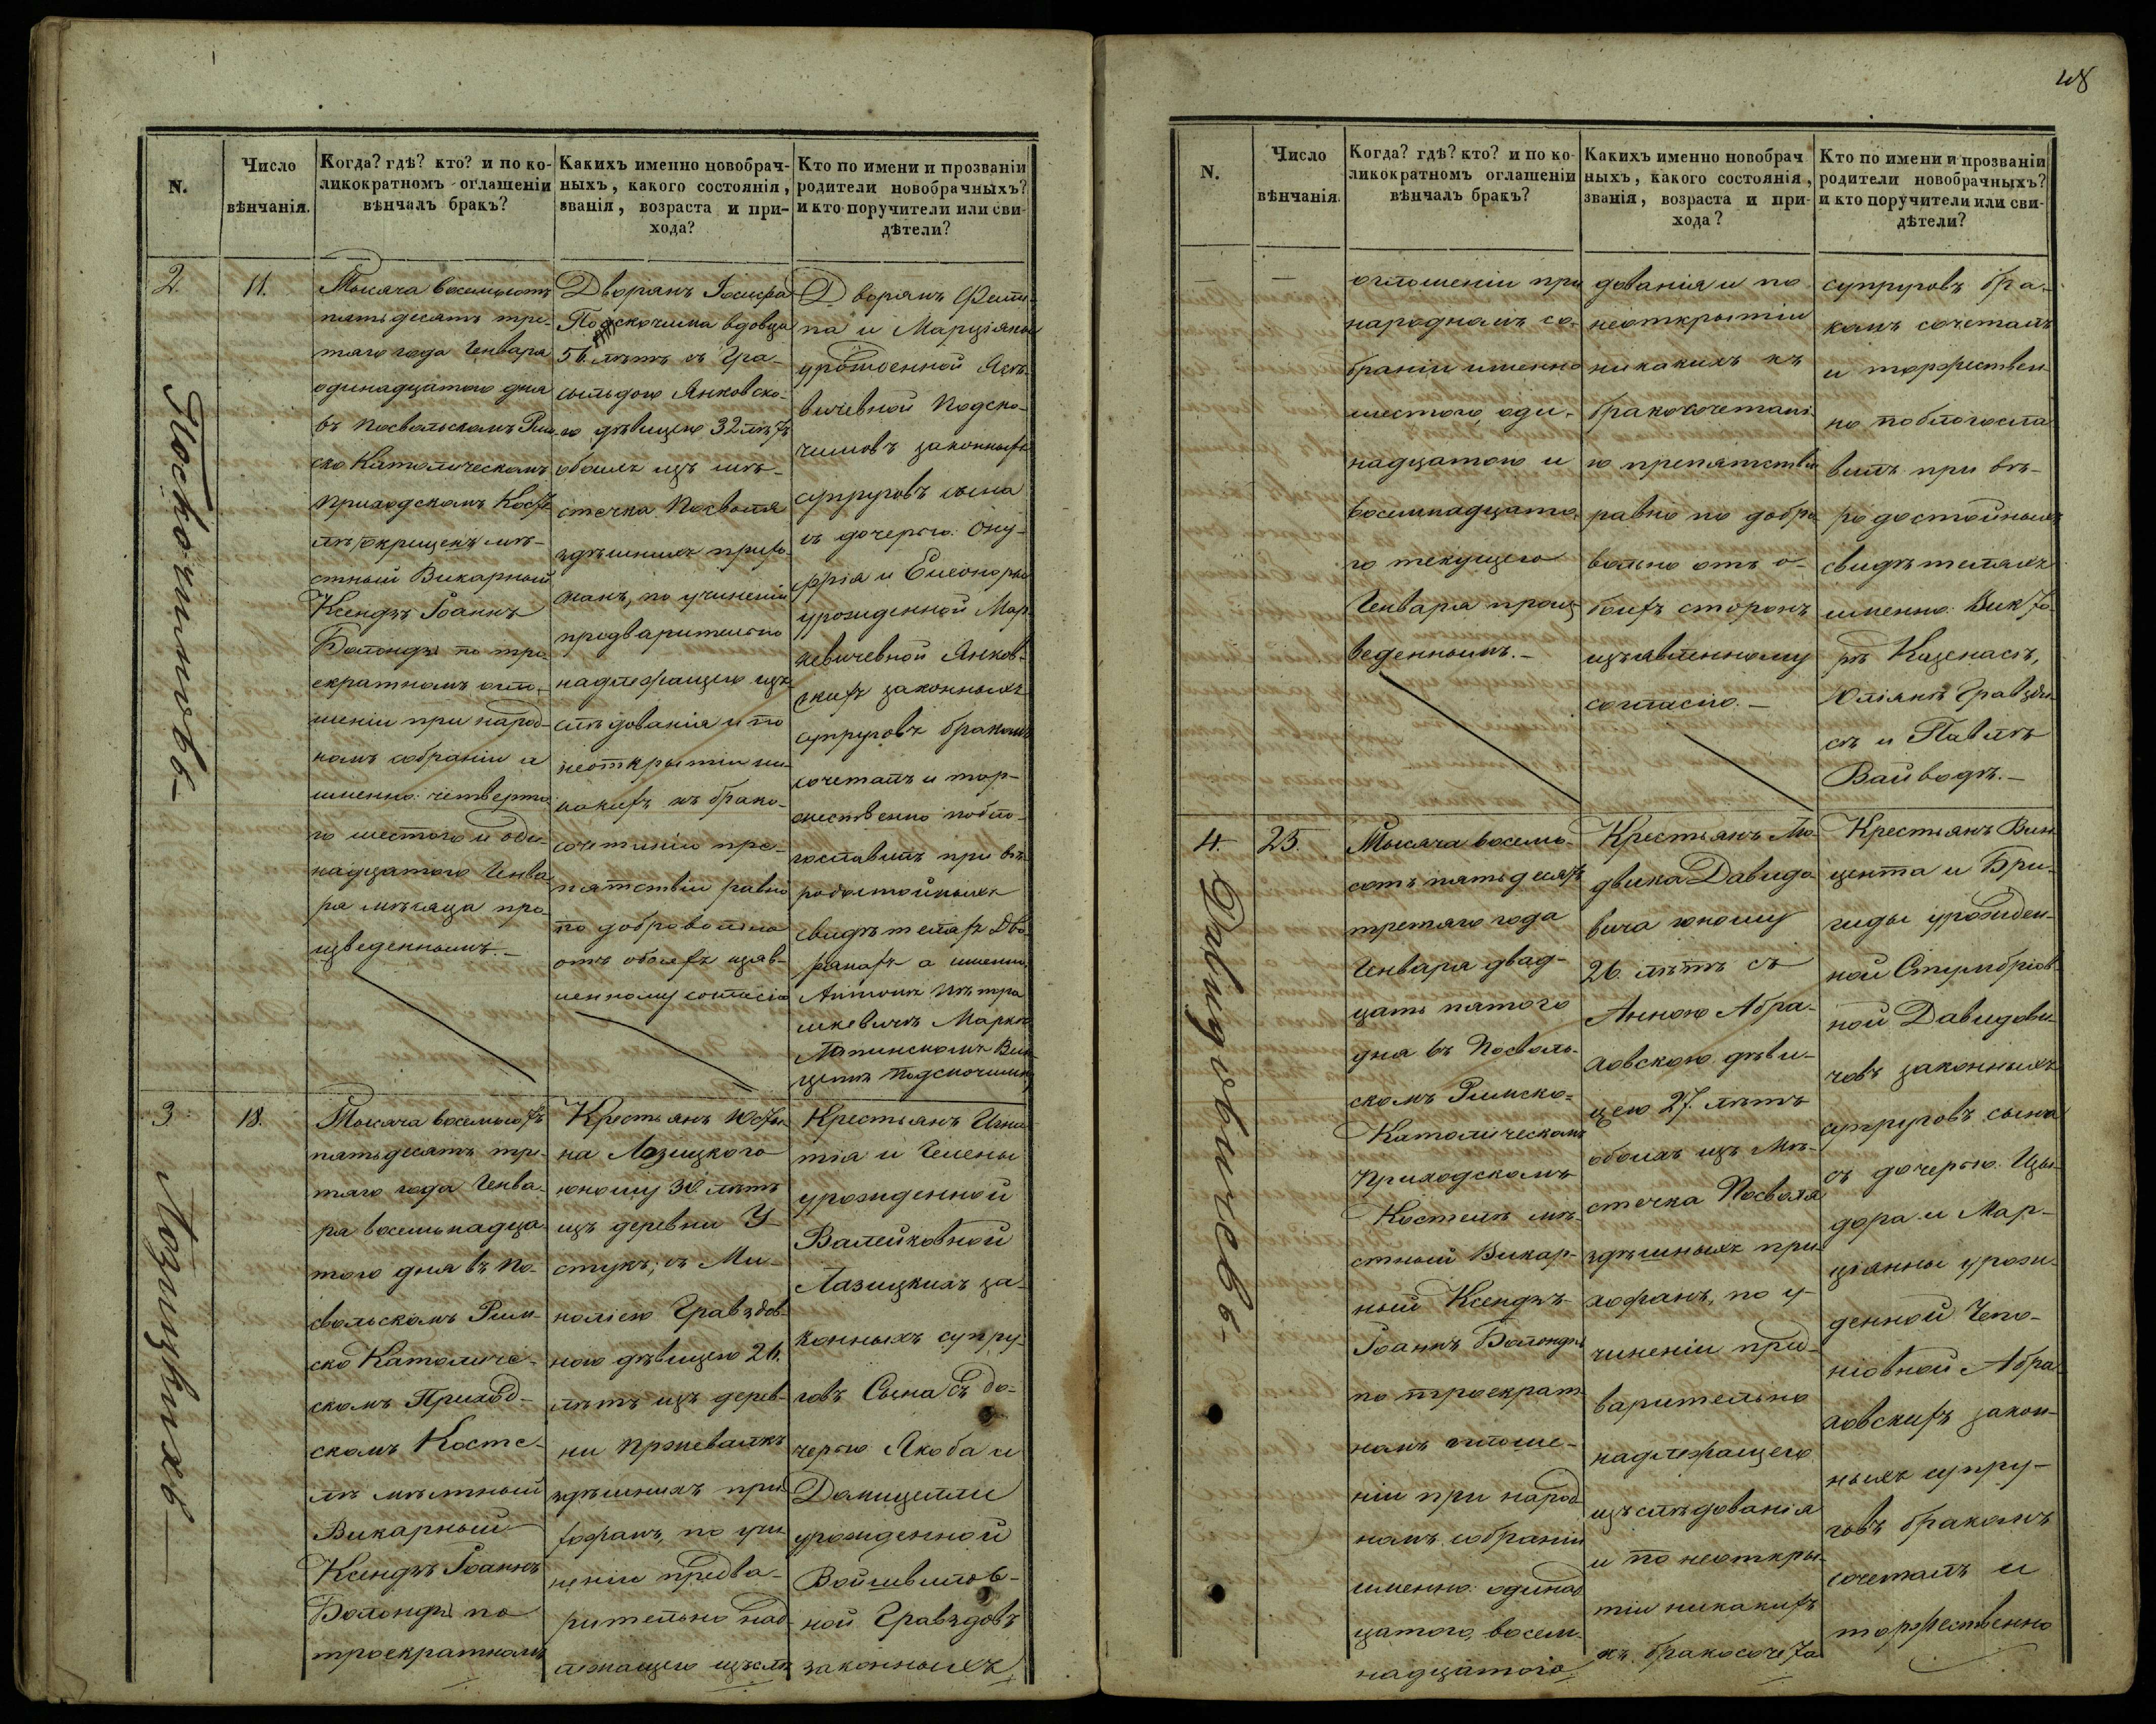 N.
Число
вѣнчанія.
Когда? гдѣ? кто? и по ко-
ликократномъ оглашеніи
вѣнчалъ бракъ?
Какихъ именно новобрач-
ныхъ, какого состоянія,
званія, возраста и при-
хода?
Кто по имени и прозваніи
родители новобрачныхъ?
и кто поручители или сви-
дѣтели?
2.
11.
Тысяча восемьсотъ
пятьдесятъ тре-
тяго года Генваря
одинадцатого дня
въ Посвольскомъ Рим-
ско Католическомъ
приходскомъ Косте-
лѣ мѣ-
стный Викарный
Ксендзъ Іоаннъ
Болондзь по трое-
екратномъ огло-
шеніи при народ-
номъ собраніи и
именно: четверто-
го шестого и оди-
надцатого Генва-
ря мѣсяца про-
изведенномъ.-
Дворянъ Іосифа
Подскочима вдовца
56. лѣтъ съ Гра-
сыльдою Янковско-
ю дѣвицею 32 лѣтъ
обоихъ изъ мѣ-
стечка Посволя
здѣшнихъ прихо-
жанъ, по учиненіи
предварительно
надлежащего изъ-
слѣдованія и по
неоткрытіи ни-
какихъ къ брако-
сочетанію пре-
пятствіи равно
по добровольно
отъ обоихъ изъяв-
ленному согласію
Дворянъ Фели-
па и Марціянны
урожденной
вичевной Подско-
чимовъ законныхъ
супруговъ сына
съ дочерью: Ону-
фрія и Елеоноры
урожденной Мар-
кевичевной Янков-
скихъ законныхъ
супруговъ бракомъ
сочеталъ и тор-
жественно побло-
гославилъ при вѣ-
родостойныхъ
свидѣтеляхъ Дво-
рянахъ а именно
Антонъ Петра-
шкевичъ Марко
Лапинскомъ Вин-
центъ Подскочимъ
Поскочимовъ-
3
18.
Тысяча восемьсотъ
пятьдесятъ тре-
тяго года Генва-
ря восемьнадца-
того дня въ По-
свольскомъ Рим-
ско Католиче-
скомъ Приход-
скомъ Косте-
лѣ мѣстный
Викарный
Ксендзъ Іоаннъ
Болондзь по
троекратномъ
Крестьянъ Юсти-
на Лозицкого
юношу 30. лѣтъ
изъ деревни У-
стукъ; съ Ми-
каліею Гравздов-
ною дѣвицею 26.
лѣтъ изъ дерев-
ни
здѣшнихъ при-
хожанъ, по учи-
неніи предва-
рительно над-
лежащего изъслѣ
Крестьянъ Игна-
тія и Гелены
урожденной
Валейковной
Лазицкихъ за-
конныхъ супру-
говъ Сына съ до-
черью Якоба и
Домицелли
урожденной
Войшвилов-
ной Гравздовъ
законныхъ
Лозицкихъ-
48
N.
Число
вѣнчанія.
Когда? гдѣ? кто? и по ко-
ликократномъ оглашеніи
вѣнчалъ бракъ?
Какихъ именно новобрач
ныхъ, какого состоянія,
званія, возраста и при-
хода?
Кто по имени и прозваніи
родители новобрачныхъ?
и кто поручители или сви-
дѣтели?
оглошеніи при
народномъ со-
браніи именно
шестого, оди-
надцатого и
восемнадцато-
го текущего
Генваря произ-
веденномъ.-
дованія и по
неоткрытіи
никакихъ къ
бракосочетані-
ю препятствіи
равно по добро-
вольно отъ о-
боихъ сторонъ
изъявленному
согласію.-
супруговъ бра-
комъ сочеталъ
и торжествен-
но поблогосла-
вилъ при вѣ-
родостойныхъ
свидѣтеляхъ
именно: Викто-
ръ Каценасъ,
Юліянъ Гравзди-
съ и Павелъ
Вайводъ.-
4.
25.
Тысяча восемь-
сотъ пятьдесятъ
третяго года
Генваря двад-
цать пятого
дня въ Посволь-
скомъ Римско-
Католическомъ
Приходскомъ
Костелѣ мѣ-
стный Викар-
ный Ксендзъ
Іоаннъ Болондзь
по троекрат-
номъ оглоше-
ніи при народ-
номъ собраніи
именно: одинад-
цатого, восем-
надцатого
Крестьянъ Лю-
двика Давидо-
вича юношу
26. лѣтъ съ
Анною Абра-
ховскою дѣви-
цею 27. лѣтъ
обоихъ изъ Мѣ-
стечка Посволя
здѣшныхъ при-
хожанъ, по у-
чиненіи пред-
варительно
надлежащего
изъслѣдованія
и по неоткры-
тіи никакихъ
къ бракосочета
Крестьянъ Вин-
цента и Бри-
гиды урожден-
ной Стумбріов-
ной Давидови-
човъ законныхъ
супруговъ сына
съ дочерью Изы-
дора и Мар-
ціянны урож-
денной Чепо-
ніовной Абра-
ховскихъ закон-
ныхъ супру-
говъ бракомъ
сочеталъ и
торжественно
Давидовичовъ-